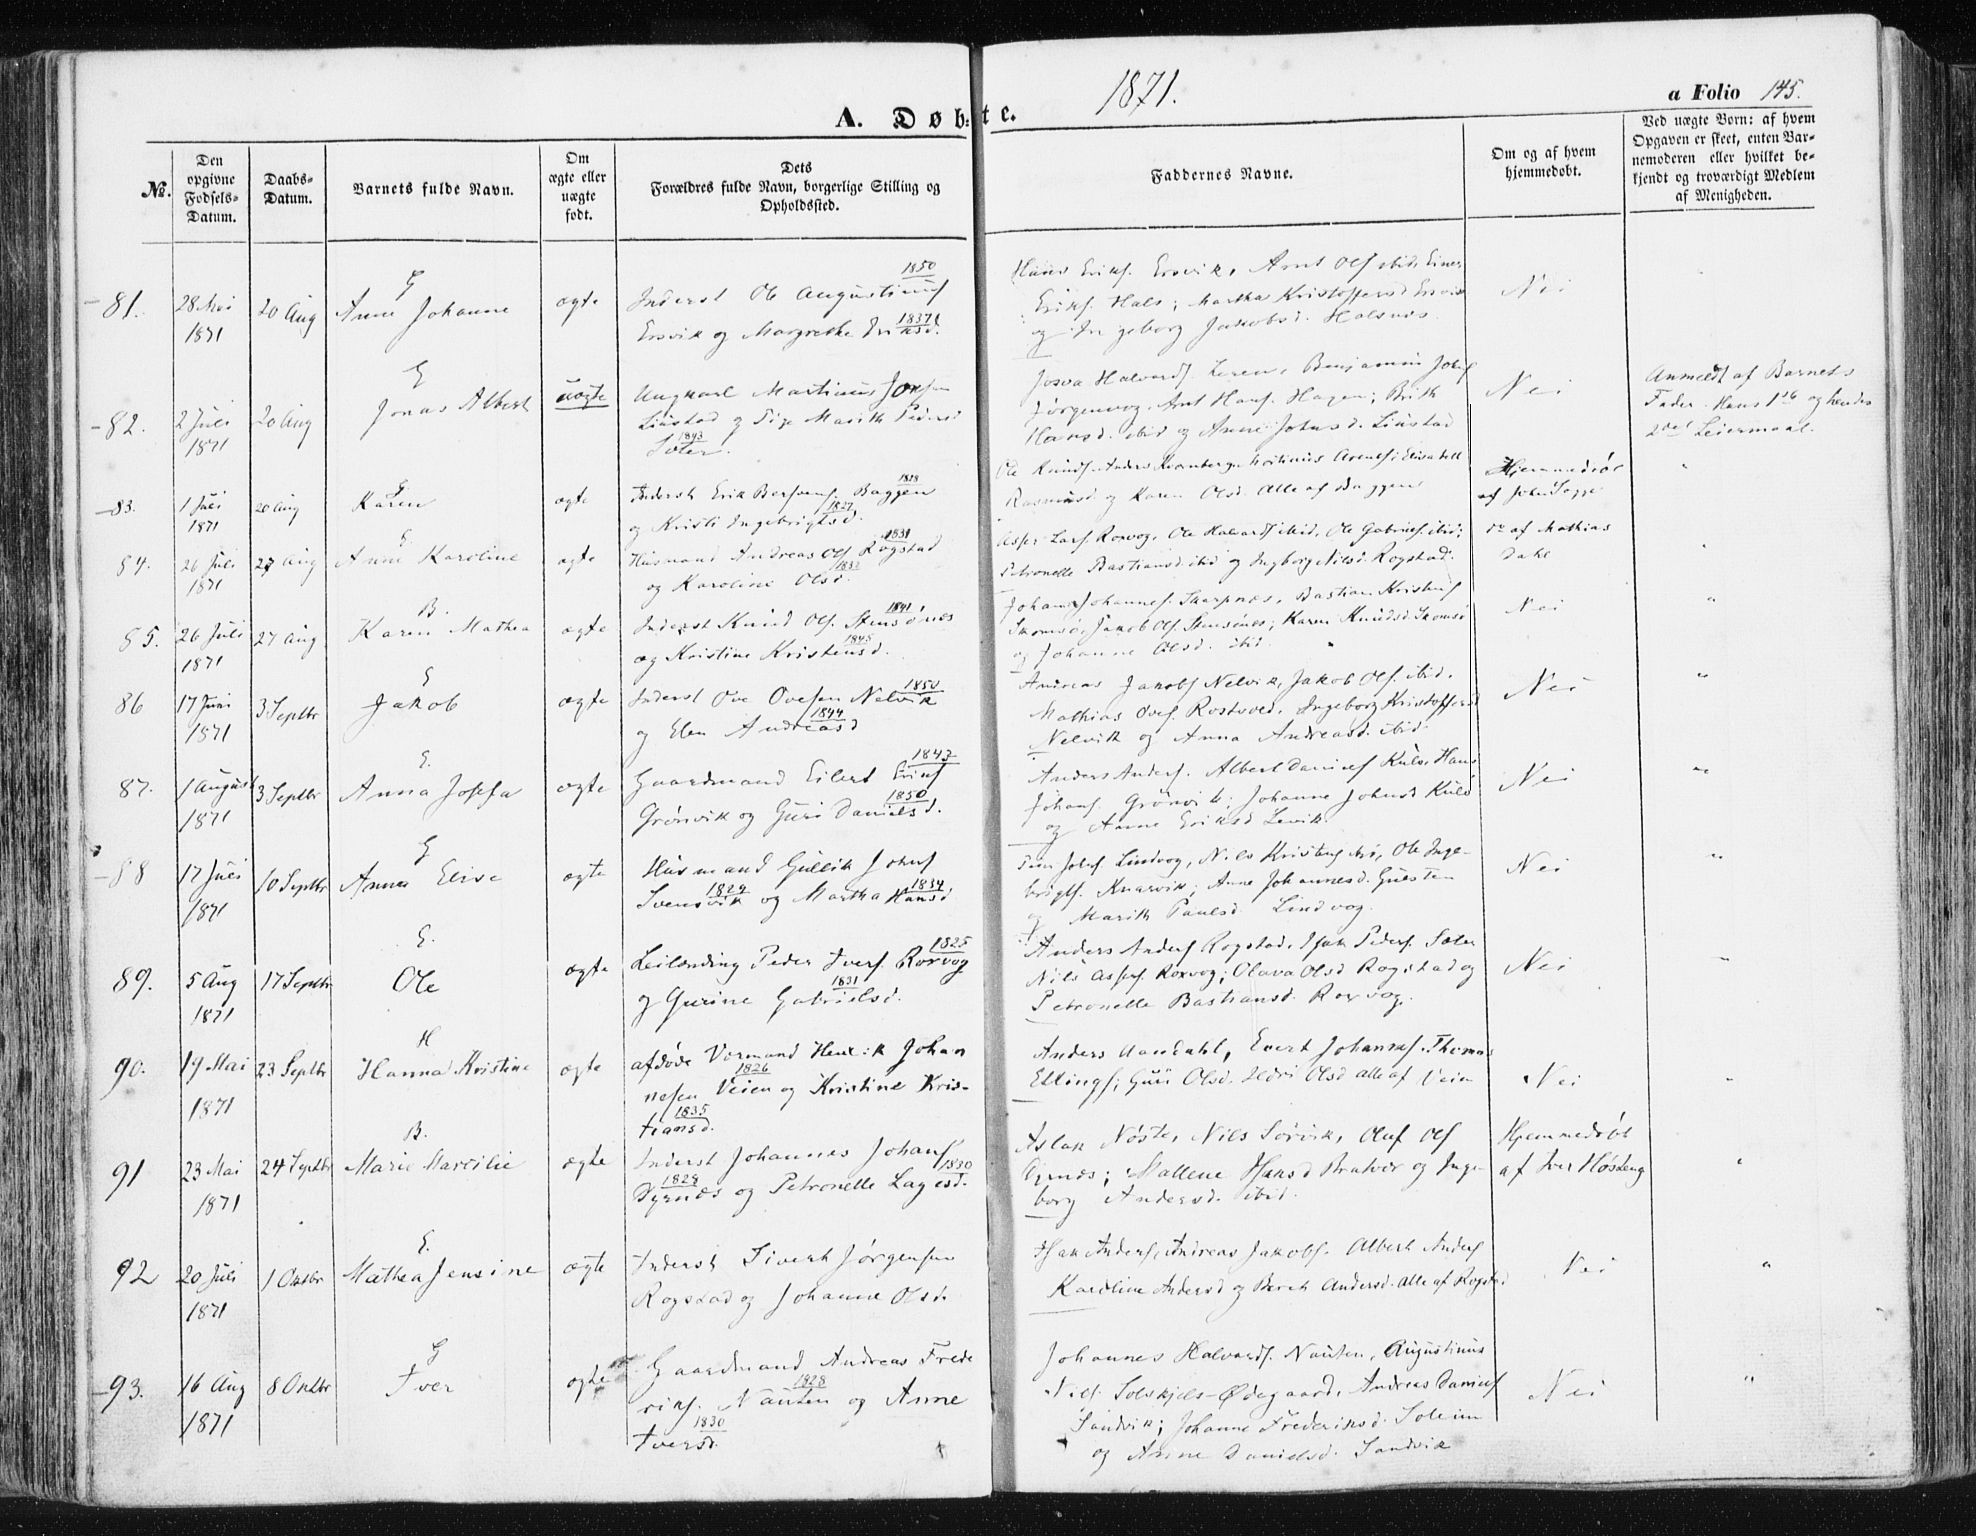 1871.
a Folio 145.
A. Døbte.
№.
Den opgivne Fødsels-Datum.
Daabs-Datum.
Barnets fulde Navn.
Om ægte eller uægte født.
Dets Forældres fulde Navn, borgerlige Stilling og Opholdssted.
Faddernes Navne.
Om og af hvem hjemmedøbt.
Ved uægte Børn: af hvem Opgaven er skeet, enten Barnemoderen eller hvilket bekjendt og troværdigt Medlem af Menigheden.
81. 28 Mai 1871 20 Aug Anne Johanne ægte
Inderst Ole Augustinusf 1850
Ersvik og Margrethe Eriksd. 1837
Hans Eriks. Ersvik, Arnt Olsf ibid, Einer
Eriks. Hals; Martha Kristoffersd Ersvik
og Ingeborg Jakobsd. Halsnes.
Nei
82. 2 Juli 1871 20 Aug Jonas Albert uægte
Ungkarl Martinus Jonsen
Liustad og Pige Marith Pedersd
1843
Sæter.
Josva Halvards. Leren, Benjamin Johsf
Jørgenvog, Arnt Hansf. Hagen; Brith
Hansd. ibid og Anne Johnsd. Liustad
Nei
Anmeldt af Barnets
Fader. Hans 1ste og hendes
2det Leiermaal.
83. 1 Juli 1871 20 Aug Karen ægte
Inderst Erik Bersvens. Baggen 1828
og Kristi Ingebrigtsd. 1827
Ole Knuds. Anders Kornberg, Martinus Arents; Elisabeth
Rasmusd og Karen Olsd. Alle af Baggen
Hjemmedøbt
af John Sagge
84. 26 Juli 1871 27 Aug Anne Karoline ægte
Husmand Andreas Ols Rogstad 1831
og Karoline Olsd. 1832
Asper Larsf. Roxvog, Ole Halvardsf ibid, Ole Gabrielsf ibid;
Petronelle Bastiansd ibid og Ingborg Nilsd. Rogstad.
do af Mathias
Dahl
85. 26 Juli 1871 27 Aug Karen Mathea ægte
Inderst Knud Ols. Stensønes 1841
og Kristine Kristensd. 1845
Johan Johannesf. Skarpnes, Bastian Kristensf
Skomsø, Jakob Olsf. Stensønes; Karen Knudsd. Skomsø
og Johanne Olsd. ibid.
Nei
86 17 Juni 1871 3 Septbr Jakob ægte
Inderst Ove Ovesen Nelvik 1850
og Elen Andreasd 1844
Andreas Jakobsf Nelvik, Jakob Olsf. ibid.
Mathias Ovesf. Rostvold, Ingeborg Kristoffersd
Nelvik og Anna Andreasd. ibid.
Nei
87. 1 August 1871 3 Septbr Anna Josefa ægte
Gaardmand Eilert Eriksf 1843
Grønvik og Guri Danielsd. 1850
Anders Andersf. Albert Danielsf Kulø, Hans
Johansf. Grønvik; Johanne Johnsd Kulø
og Anne Eriksd Levik
Nei
88 17 Juli 1871 10 Septbr Anna Elise ægte
Husmand Gullik Johnsf
1829
Svensvik og Martha Hansd. 1834
Johsf Lindvog, Nils Kristensf ibid, Ole Inge-
brigts. Knarvik; Anne Johannesd. Gusten
og Marith Paulsd. Lindvog.
Nei
89. 5 Aug 1871 17 Septbr Ole ægte
Leilænding Peder Iversf. Roxvog 1825
og Gurine Gabrielsd. 1831
Anders Andersf Rogstad, Isak Pedersf. Sæter
Nils Aspersf. Roxvog; Olava Olsd Rogstad og
Petronelle Bastiansd. Roxvog.
Nei
90. 19 Mai 1871 23 Septbr Hanna Kristine ægte
afdøde Vormand Henrik Johan
1826
nesen Veien og Kristine Kris-
1835
tiansd.
Anders Aandahl, Evert Johannesf. Thomas
Ellingsf; Guri Olsd. Ildri Olsd alle af Veien
Nei
91 23 Mai 1871 24 Septbr Marie Marcilie ægte
Inderst Johannes Johansf
1829
Dyrnes og Petronelle Lagesd. 1830
Aslak Nøste, Nils Sørvik, Oluf Olsf
Dyrnes; Mallene Hansd Bratvær og Inge-
borg Andersd. ibid.
Hjemmedøbt
af Iver Høsteng
92 20 Juli 1871 1 Oktbr Mathea Jensine ægte
Inderst Sivert Jørgensen
Rogstad og Johanne Olsd.
Isak Andersf, Andreas Jakobsf. Albert Andersf
Karoline Andersd og Bereth Andersd. Alle af Rogstad
Nei
93. 16 Aug 1871 8 Oktbr Iver ægte
Gaardmand Andreas Frede
1828
riksf. Nausten og Anne
1830
Iversd.
Johannes Halvardsf. Nausten, Augustinus
Nilsf. Solskjels-Ødegaard, Andreas Danielsf
Sandvik; Johanne Frederiksd. Soleim
og Anne Danielsd. Sandvik
Nei